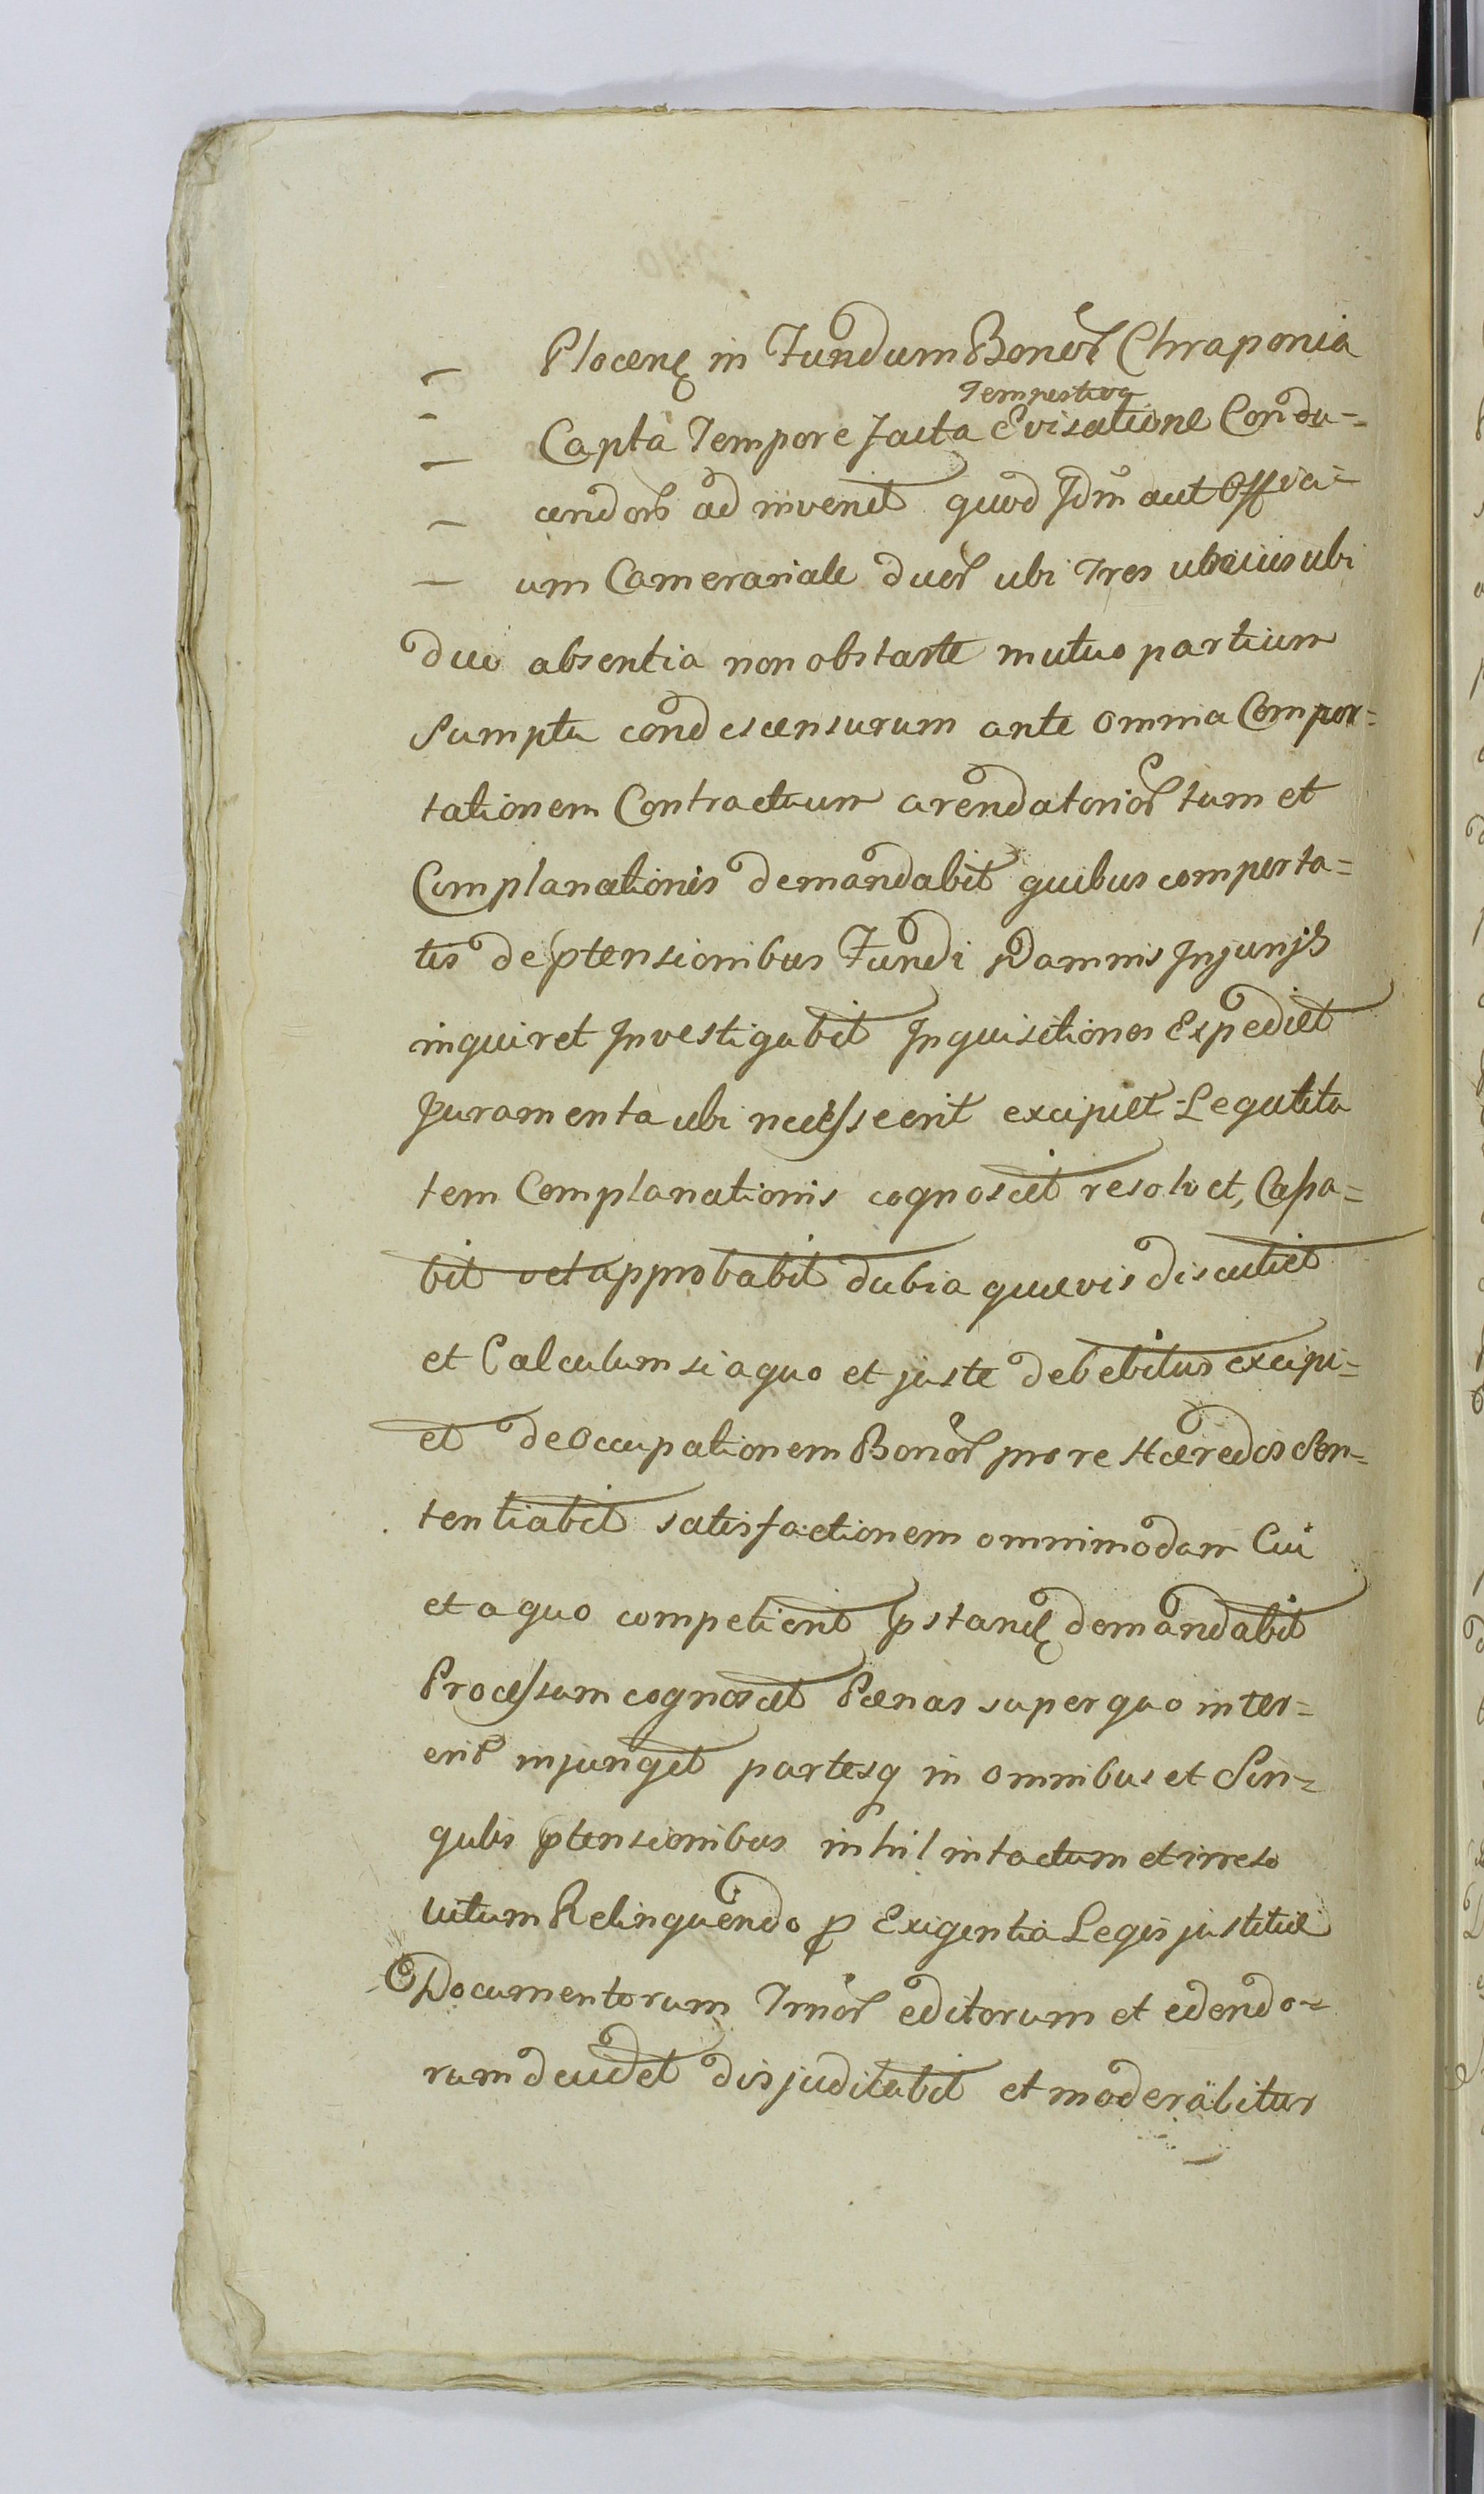 Plocen in Fundum Bonor Chraponia
Tempestiva
Capta Tempore facta Evisatione Condu=
cendor ad invenit quod Idm aut Offici=
um Camerariale duor ubi Tres unius ubi
duo absentia non obstante mutuo partium
Sumptu condescensurum ante omnia Compor=
tationem Contractuum arendatorior tum et
Complanationis demandabit quibus comporta=
tis de ptensionibus Fundi Damnis Injurijs
inquiret Investigabit Inquisitiones Expediet
Juramenta ubi necesse erit excipiet Legalita
tem Complanationis cognoscet resolvet, Cassa=
bit vel approbabit dubia quævis discutiet
et Calculum si a quo et juste debebitur excipi=
et de Occupationem Bonor pro re Hæredis Sen=
tentiabit satisfactionem omnimodam Cui
et a quo competierit pstan demandabit
Processum cognoscet Pœnas super quo inter=
erit injunget partesq in omnibus et Sin=
gulis ptensionibus inhil intactum et irreso
lutum Relinquendo p Exigentia Legis justitiæ
Documentorum Irnor editorum et edendo=
rum decidet disjudicabit et moderabitur